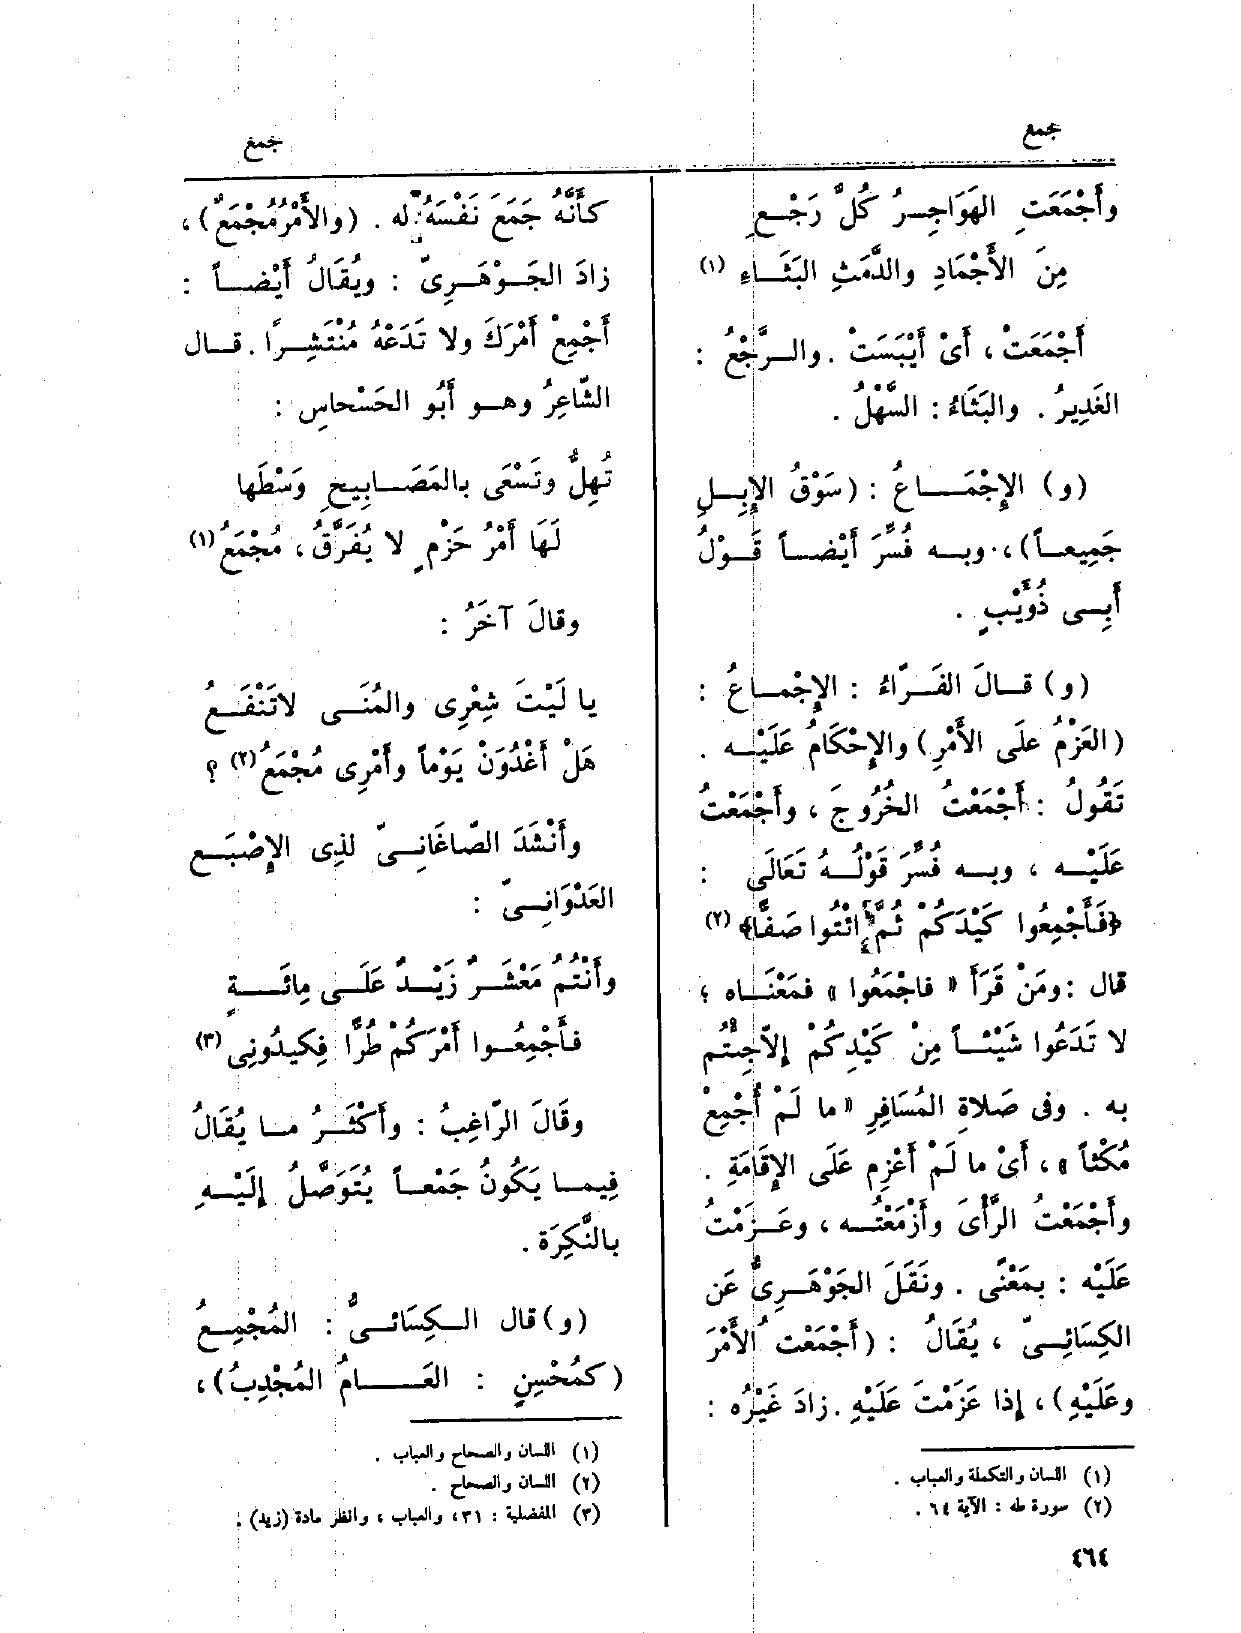 جمع
جمع
وأَجْمَعَتِ الهَوَاجِرُ كُلَّ رَجْعٍ
مِنَ الأَجْمَادِ والدَّمَثِ البَثَاءِ (١)
أَجْمَعَتْ ، أَىْ أَيْبَسَتْ . والرَّجْعُ :
الغَدِيرُ . والبَثَاءُ : السَّهْلُ .
(و) الإِجْمَاعُ : (سَوْقُ الإِبِلِ
جَمِيعاً)، وبه فُسِّرَ أَيْضاً قَوْلُ
أَبِى ذُوَيْبٍ .
(و) قالَ الفَرَّاءُ : الإِجْمَاعُ :
(العَزْمُ علَى الأَمْرِ) والإِحْكَامُ عَلَيْه .
تَقُولُ : أَجْمَعْتُ الخُرُوجَ ، وأَجْمَعْتُ
عَلَيْه ، وبه فُسِّرَ قَوْلُهُ تَعَالَى :
﴿فَأَجْمِعُوا كَيْدَكُمْ ثُمَّ ائْتُوا صَفًّا﴾ (٢)
قال : ومَنْ قَرَأَ « فاجْمَعُوا » فمَعْنَاه ؛
لا تَدَعُوا شَيْئاً مِنْ كَيْدِكُمْ إِلاَّ جِئْتُم
به . وفى صَلاةِ المُسَافِرِ « ما لَمْ أُجْمِعْ
مُكْثاً » ، أَىْ ما لَمْ أَعْزِم عَلَى الإِقَامَةِ .
وأَجْمَعْتُ الرَّأْىَ وأَزْمَعْتُه ، وعَزَمْتُ
عَلَيْه : بمَعْنًى . ونَقَلَ الجَوْهَرِىُّ عَن
الكِسَائِىّ ، يُقَالُ : (أَجْمَعْت الأَمْرَ
وعَلَيْهِ)، إِذا عَزَمْتَ عَلَيْهِ . زادَ غَيْرُه :
(١) اللسان والتكملة والعباب .
(٢) سورة طه : الآية ٦٤ .
كَأَنَّهُ جَمَعَ نَفْسَهُ له . (والأَمْرُ مُجْمَعٌ) ،
زادَ الجَوْهَرِىّ : ويُقَالُ أَيْضاً :
أَجْمِعْ أَمْرَكَ ولا تَدَعْهُ مُنْتَشِرًا . قال
الشّاعِرُ وهو أَبُو الحَسْحاس :
تُهِلُّ وتَسْعَى بالمَصَابِيحِ وَسْطَها
لَهَا أَمْرُ حَزْمٍ لا يُفَرَّقُ ، مُجْمَعُ (١)
وقالَ آخَرُ :
يا لَيْتَ شِعْرِى والمُنَى لاتَنْفَعُ
هَلْ أَغْدُوَنْ يَوْماً وأَمْرِى مُجْمَعُ (٢) ؟
وأَنْشَدَ الصّاغَانِىّ لذِى الإِصْبَع
العَدْوَانِىّ :
وأَنْتُم مَعْشَرٌ زَيْدٌ عَلَى مِائَةٍ
فأَجْمِعُوا أَمْرَكُمْ طُرًّا فكِيدُونِى (٣)
وقَالَ الرّاغِبُ : وأَكْثَرُ ما يُقَالُ
فِيما يَكُونُ جَمْعاً يُتَوَصَّلُ إِلَيْهِ
بالنَّكِرَة .
(و) قال الكِسَائىُّ : المُجْمِعُ
(كمُحْسِنٍ : العَامُ المُجْدِبُ)،
(١) اللسان والصحاح والعباب .
(٢) اللسان والصحاح .
(٣) المفضلية : ٣١، والعباب ، وانظر مادة (زيد) .
٤٦٤